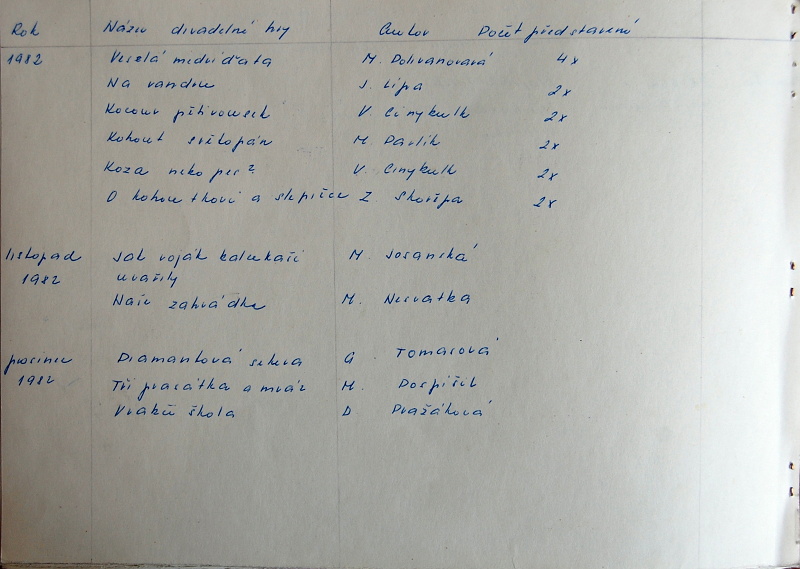 Rok Název divadelní hry Autor Počet představení
1982 Veselá medvíďata M. Dolivanovová 4x
Na vandru J. Lípa 2x
Kocour pětivousek V. Cinybulk 2x
Kohout světopán M. Pavlík 2x
Koza nebo pes? V. Cinybulk 2x
O kohoutkovi a slepičce Z Skořepa 2x
listopad Jak voják kalnkaši M. Sosanská
1982 uvařily
Naše zahrádka M. Nesvatba
prosinec Diamantová sekera G Tomasová
1982 Tři prasátka a mráz M. Dospíšil
Vračí škola D Pražáková